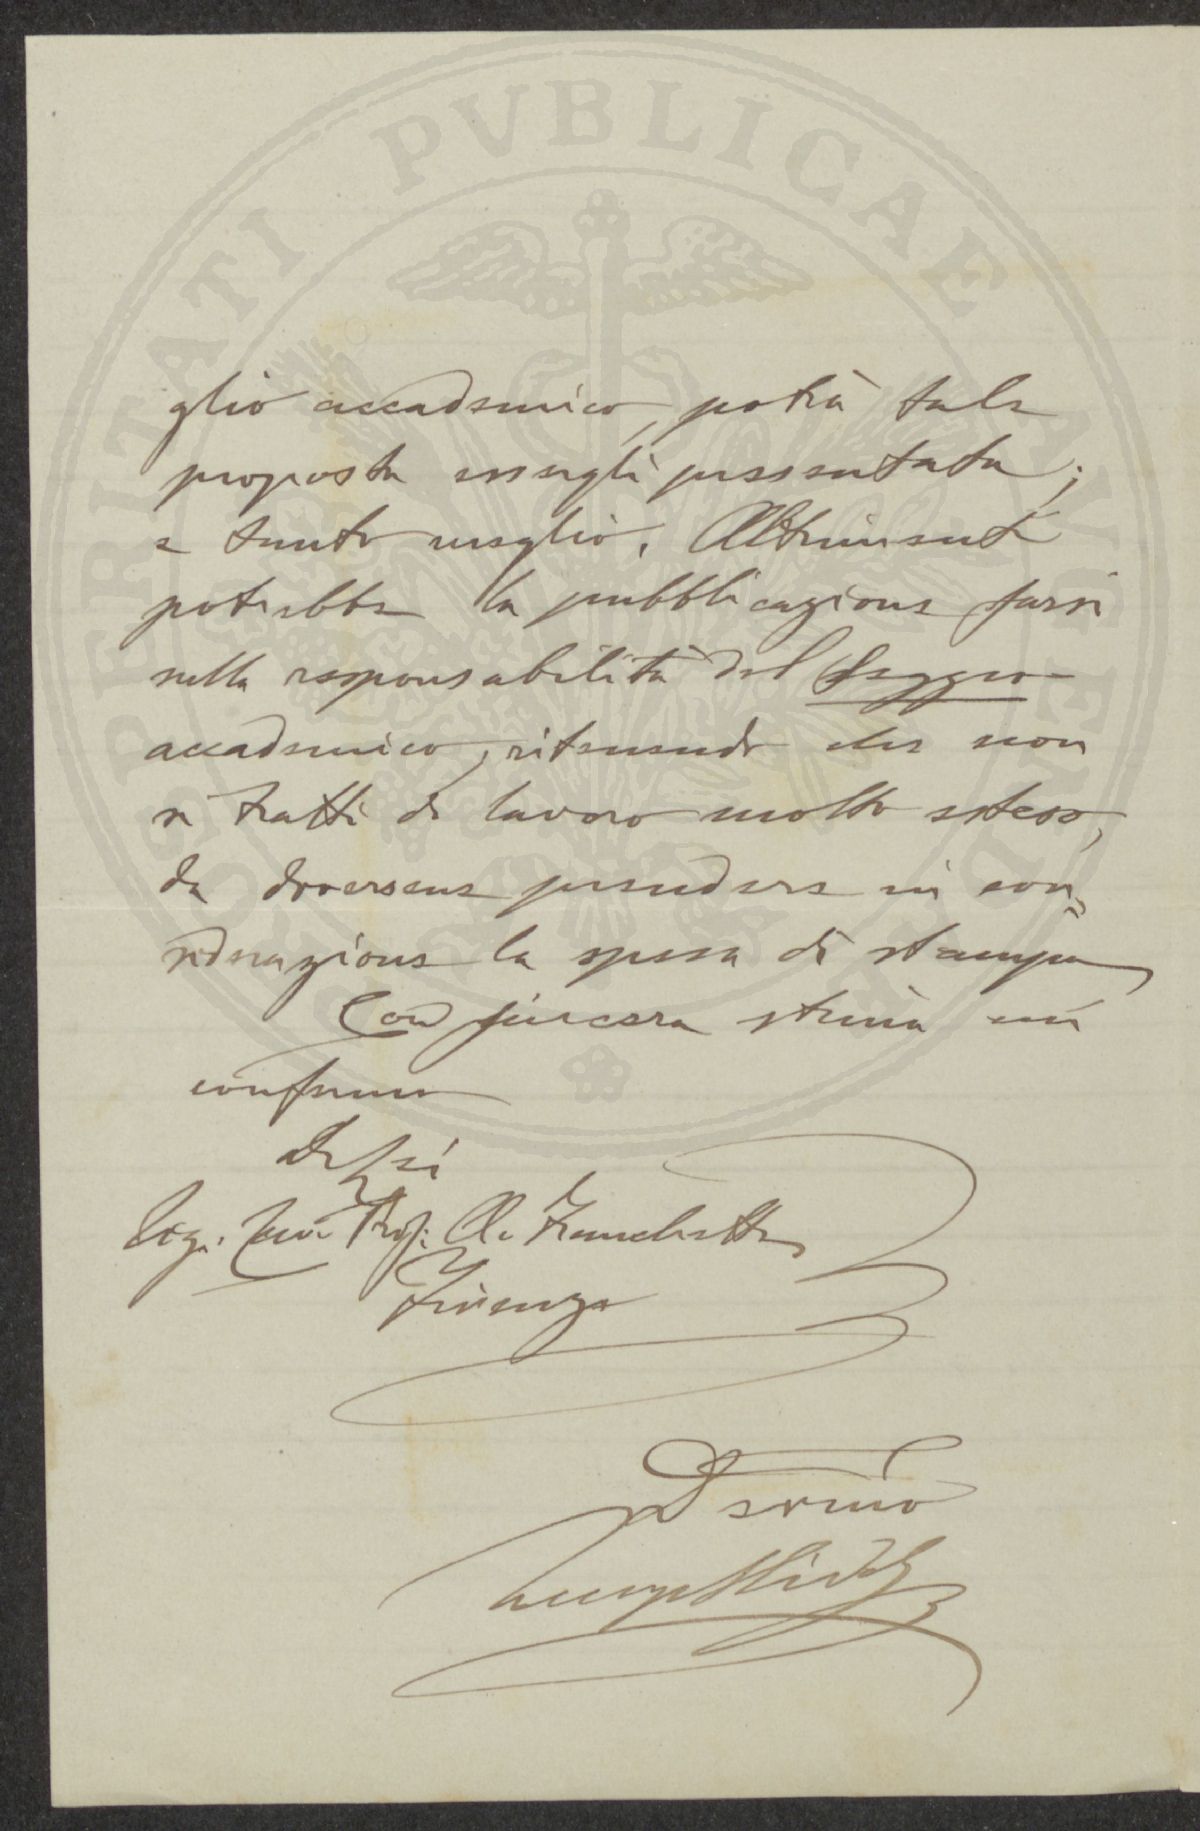 PROSPERITATI PVBLICAE AVGENDAE
glio accademico, potrà tale
proposta essergli presentata;
e tanto meglio. Altrimenti
potrebbe la pubblicazione farsi
sulla responsabilità del Seggio
accademico, ritenendo che non
si tratti di lavoro molto esteso,
da doversene prendere in con=
siderazione la spesa di stampa.
Con sincera stima mi
confermo
Di Lei
Sig. Cav. Prof. A. Franchetti
Firenze
Devmo